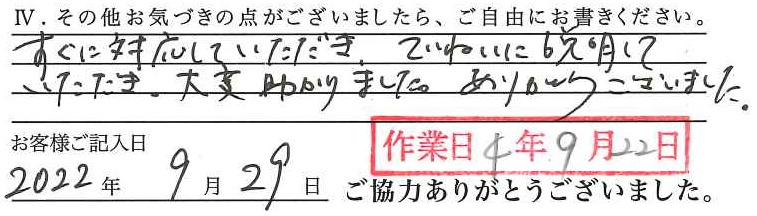 Ⅳ．その他お気づきの点がございましたら、ご自由にお書きください。
すぐに対応していただき、ていねいに説明して
いただき、大変助かりました。ありがとうございました。
お客様ご記入日
作業日 4年 9月 22日
2022年 9月 29日
ご協力ありがとうございました。